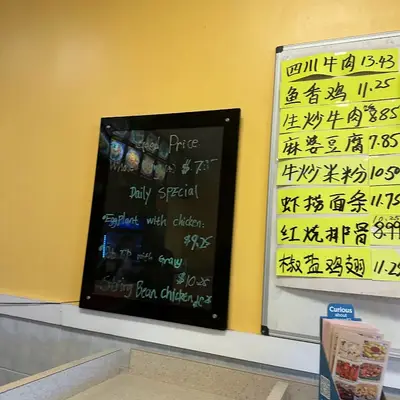 Price
Daily Special
Eggplant with chicken:
$9.25
with Gravy
$10.25
Bean chicken
四川牛肉 13.43
鱼香鸡 11.25
生炒牛肉 8.85
麻婆豆腐 7.85
牛炒米粉 10.50
虾捞面条 11.75
红烧排骨 10.25
椒盐鸡翅 11.25
Curious
about